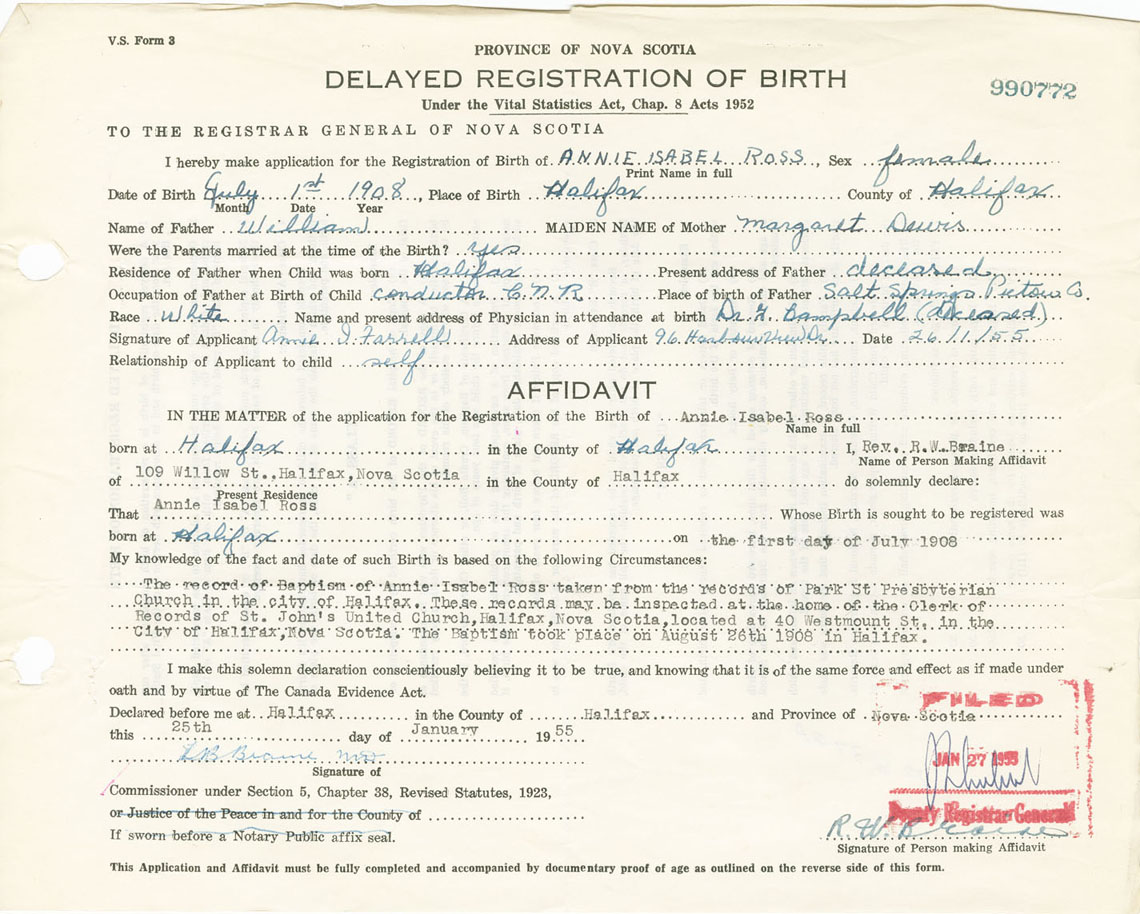 V.S. Form 3
PROVINCE OF NOVA SCOTIA
DELAYED REGISTRATION OF BIRTH
990772
Under the Vital Statistics Act, Chap. 8 Acts 1952
TO THE REGISTRAR GENERAL OF NOVA SCOTIA
I hereby make application for the Registration of Birth of ANNIE ISABEL ROSS, Sex female
Print Name in full
Date of Birth July 1st 1908, Place of Birth Halifax County of Halifax
Month Date Year
Name of Father William MAIDEN NAME of Mother Margaret Dewis
Were the Parents married at the time of the Birth? yes
Residence of Father when Child was born Halifax Present address of Father deceased
Occupation of Father at Birth of Child conductor C.N.R Place of birth of Father Salt Springs Pictou Co.
Race White Name and present address of Physician in attendance at birth Dr. Campbell (deceased)
Signature of Applicant Annie I. Farrell Address of Applicant 96 Harbourview Dr. Date 26/1/55
Relationship of Applicant to child self
AFFIDAVIT
IN THE MATTER of the application for the Registration of the Birth of Annie Isabel Ross
Name in full
born at Halifax in the County of Halifax I, Rev. R.W. Braine
Name of Person Making Affidavit
of 109 Willow St., Halifax, Nova Scotia in the County of Halifax do solemnly declare:
Present Residence
That Annie Isabel Ross Whose Birth is sought to be registered was
born at Halifax on the first day of July 1908
My knowledge of the fact and date of such Birth is based on the following Circumstances:
The record of Baptism of Annie Isabel Ross taken from the records of Park St Presbyterian
Church in the city of Halifax. These records may be inspected at the home of the Clerk of
Records of St. John's United Church, Halifax, Nova Scotia, located at 40 Westmount St. in the
City of Halifax, Nova Scotia. The Baptism took place on August 26th 1908 in Halifax.
I make this solemn declaration conscientiously believing it to be true, and knowing that it is of the same force and effect as if made under
oath and by virtue of The Canada Evidence Act.
Declared before me at Halifax in the County of Halifax and Province of Nova Scotia
this 25th day of January 1955
FILED
JAN 27 1955
Deputy Registrar General
Braine
Signature of
Commissioner under Section 5, Chapter 38, Revised Statutes, 1923,
or Justice of the Peace in and for the County of
If sworn before a Notary Public affix seal.
R. W. Braine
Signature of Person making Affidavit
This Application and Affidavit must be fully completed and accompanied by documentary proof of age as outlined on the reverse side of this form.